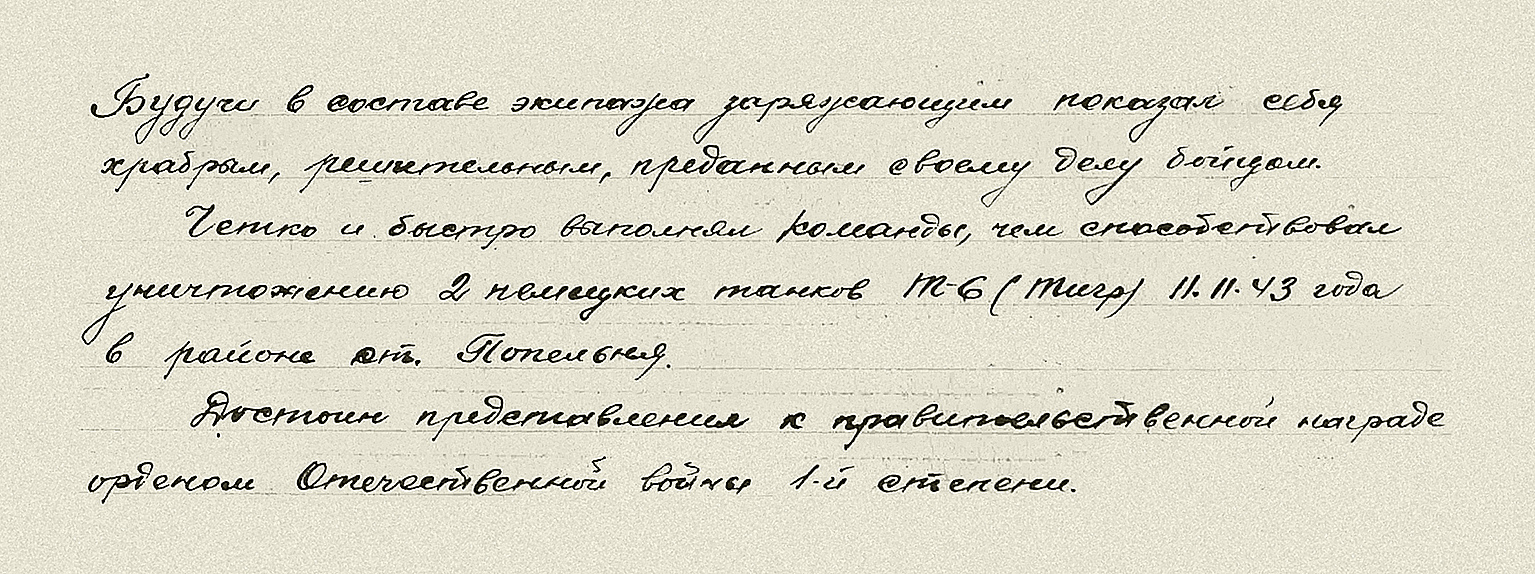 Будучи в составе экипажа заряжающим показал себя
храбрым, решительным, преданным своему делу бойцом.
Четко и быстро выполнял команды, чем способствовал
уничтожению 2 немецких танков Т-6 (Тигр) 11.11.43 года
в районе ст. Попельня.
Достоин представления к правительственной награде
орденом Отечественной войны 1-й степени.